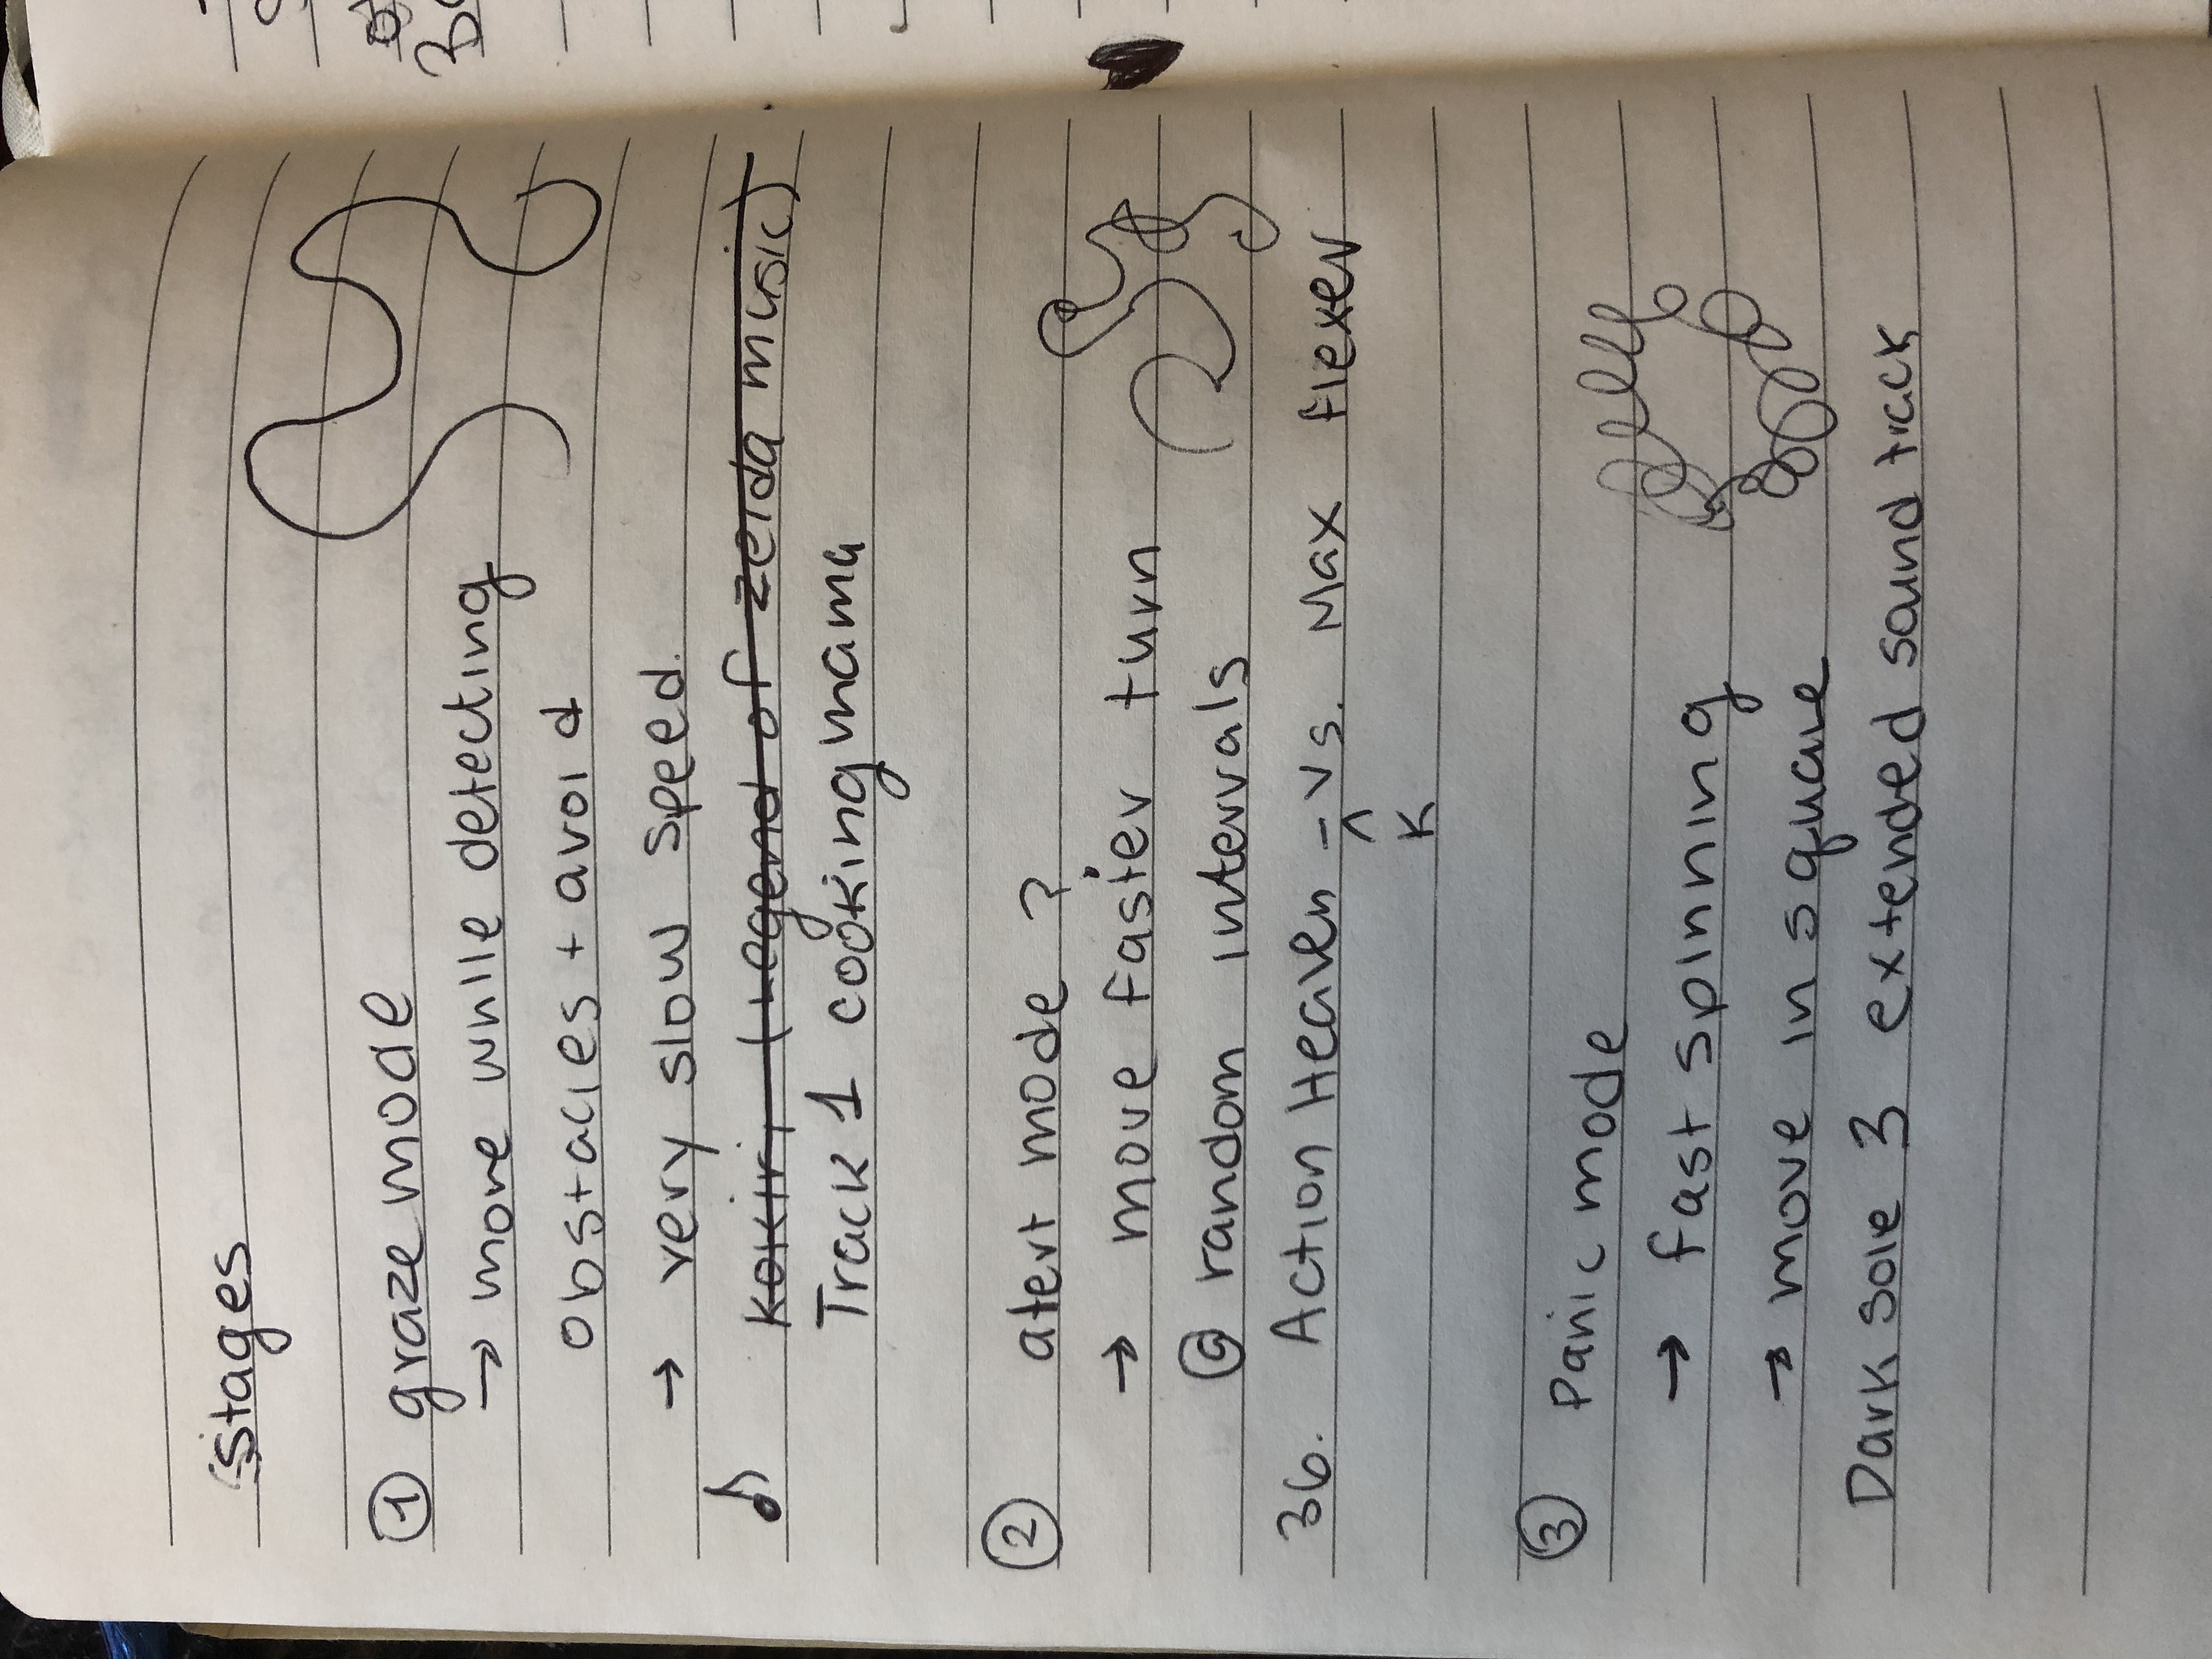 Stages
① graze mode
→ move while detecting
obstacles + avoid
→ very slow speed.
♪ Kokiri (Legend of zelda music)
Track 1 cooking mama
② alert mode ?
→ move faster turn
@ random intervals
36. Action Heaven - Vs. Max flexer
^
K
③ Panic mode
→ fast spinning
→ move in square
Dark Sole 3 extended sound track